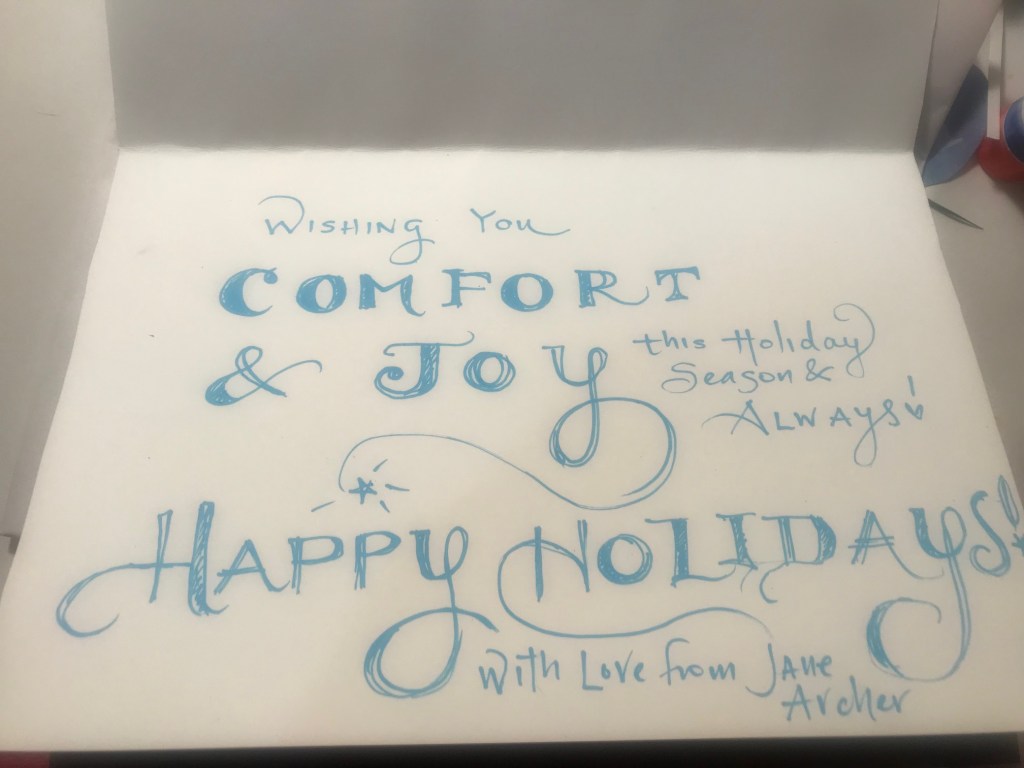 Wishing You
COMFORT
& Joy
this Holiday
Season &
Always!
Happy Holidays!
With Love from Jane
Archer